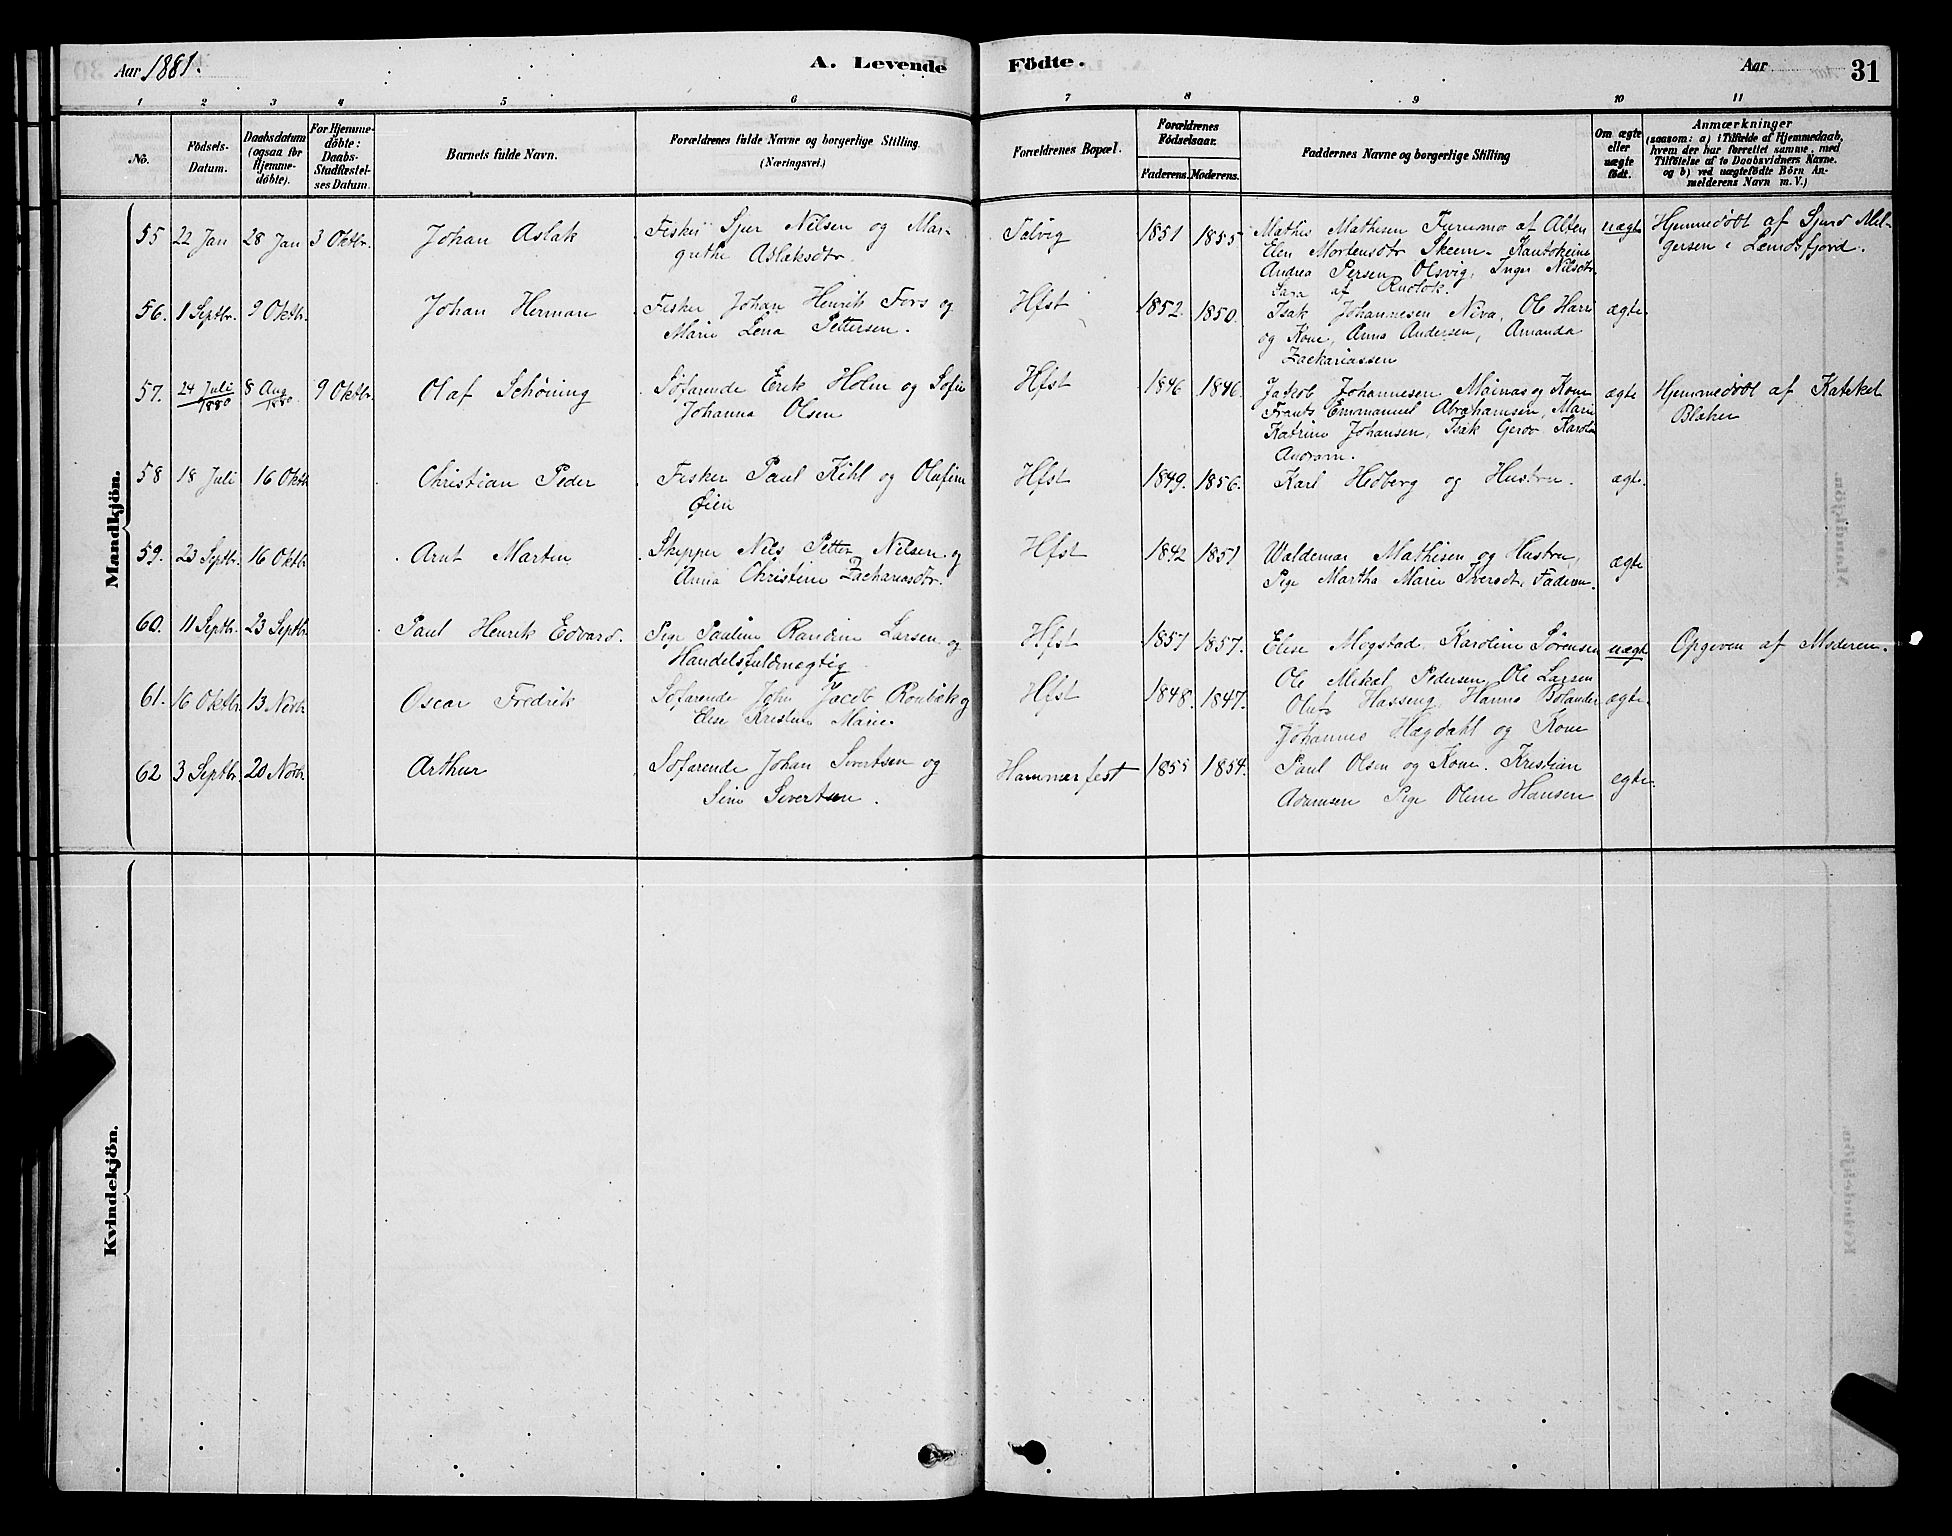 Aar 1881.
A. Levende Födte.
Aar
31
1 2 3 4 5 6 7 8 9 10 11
No.
Födsels-Datum.
Daabsdatum (ogsaa for Hjemme-döbte).
For Hjemme-döbte: Daabs-Stadfæstel-ses Datum.
Barnets fulde Navn.
Forældrenes fulde Navne og borgerlige Stilling. (Næringsvei.)
Forældrenes Bopæl.
Forældrenes Födselsaar.
Faderens. Moderens.
Faddernes Navne og borgerlige Stilling
Om ægte eller uægte födt.
Anmærkninger
(saasom: a) i Tilfælde af Hjemmedaab,
hvem der har forrettet samme, med
Tilföielse af to Daabsvidners Navne.
og b) ved uægtefödte Börn An-
melderens Navn m. V.)
Mandkjön.
55 22 Jan 28 Jan 3 Oktbr. Johan Aslak Fisker Sjur Nilsen og Mar-
grethe Aslaksdtr.
Talvig 1851 1855 Mathis Mathisen Furumo af Alten
Elen Mortensdtr Skeem. Kautokeino
Andrea Persen Olsvig, Inger Nilsdtr
Sara af
uægte Hjemmedöbt af Sjurd Mel-
gersen i Lerresfjord.
56. 1 Septbr. 9 Oktbr. Johan Herman Fisker Johan Henrik Fors og
Marie Lena Pettersen.
Hfst 1852. 1850. Isak Johannesen Niva, Ole Harri
og Kone, Anna Andersen, Amanda
Zachariassen
ægte
57. 24 Juli 1880 8 Aug 1880. 9 Oktbr. Olaf Schöning Söfarende Erik Holm og Sofie
Johanna Olsen
Hfst 1846 1846. Jakob Johannesen Mainas og Kone
Frants Emmanuel Abrahamsen, Marie
Katrine Johansen, Isak
ægte Hjemmedöbt af Kateket
Blæker
58 18 Juli 16 Oktb Christian Peder Fisker Paul Kihl og Olafine
Öien
Hfst 1849. 1856. Karl Hedberg og Hustru. ægte.
59. 23 Septbr. 16 Oktbr. Arnt Martin Skipper Nils Petter Nilsen og
Anna Christine Zachariasdtr.
Hfst 1842 1851 Waldemar Mathisen og Hustru,
Pige Martha Marie Iversdt, Faderen.
ægte
60. 11 Septbr. 23 Septbr Paul Henrik Edvard. Pige Pauline Randine Larsen og
Handelsfuldmægtig
Hfst 1857 1857. Elise Mogstad, Karoline Sörensen
Ole Mikal Pedersen, Ole Larsen
uægt Opgiven af Moderen.
61. 16 Oktbr. 13 Novbr Oscar Fredrik Söfarende John Jacob og
Elise Kristine Marie
Hfst 1848. 1847. Oluf Hasseng, Hanna Bolander
Johannes Hægdahl og Kone
ægte.
62 3 Septbr. 20 Novbr Arthur Söfarende Johan Sivertsen og
Sine Sivertsen.
Hammerfest 1855 1854. Paul Olsen og Kone. Kristian
Adamsen Pige Oline Hansen
ægte.
Kvindekjön.